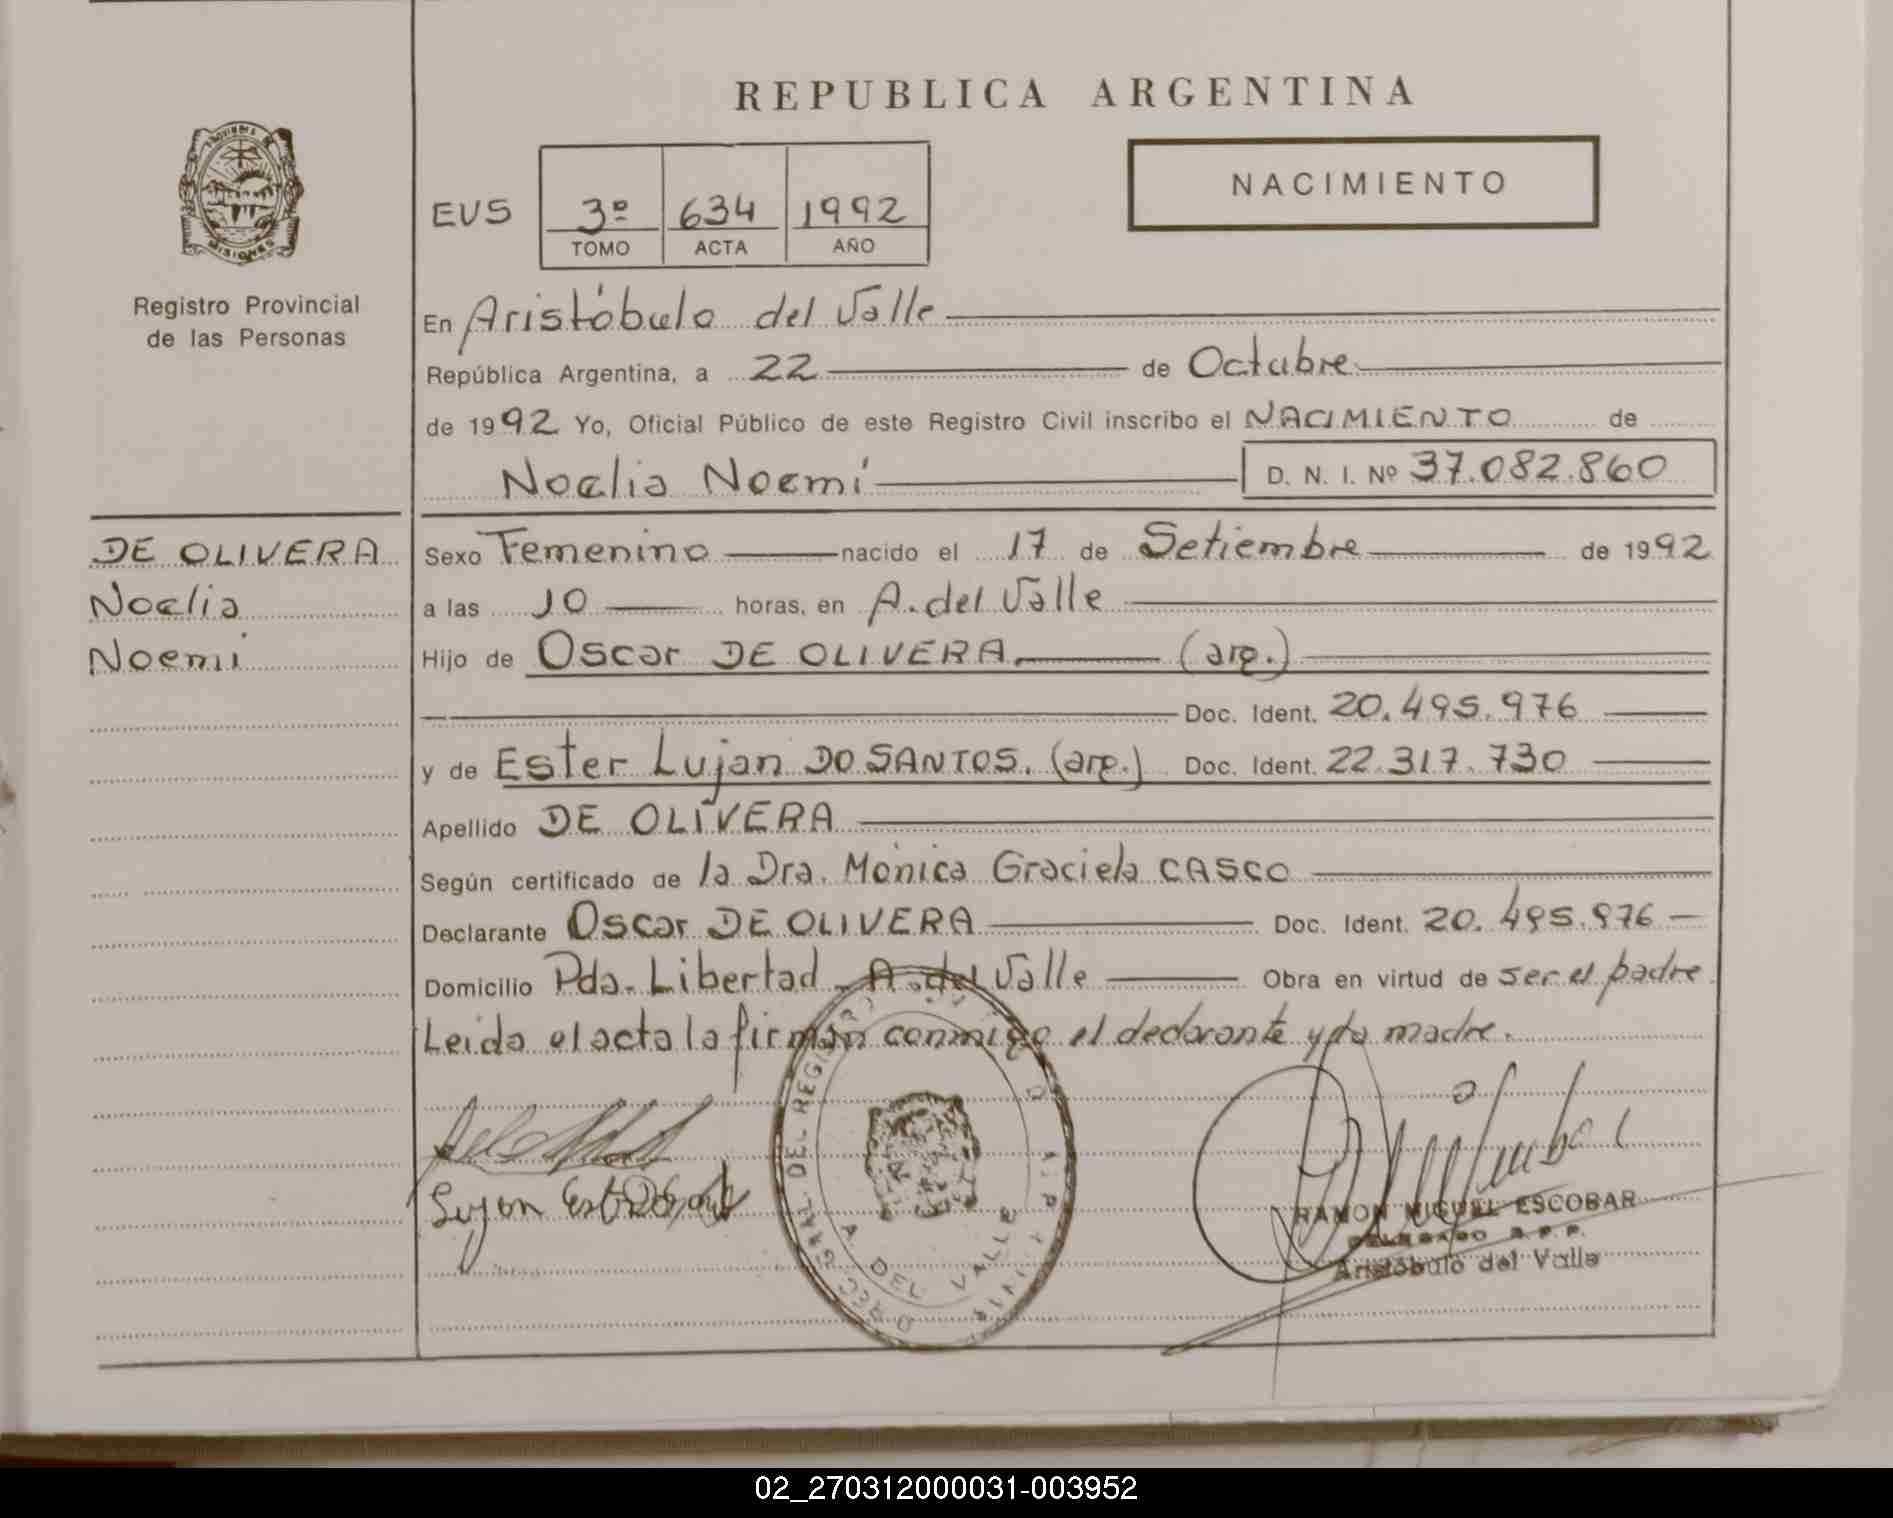 REPUBLICA ARGENTINA
NACIMIENTO
PROVINCIA DE
MISIONES
Registro Provincial
de las Personas
EVS 3º 634 1992
TOMO ACTA AÑO
En Aristóbulo del Valle
República Argentina, a 22 de Octubre
de 1992 Yo, Oficial Público de este Registro Civil inscribo el NACIMIENTO de
Noelia Noemí D. N. I. Nº 37.082.860
DE OLIVERA
Noelia
Noemi
Sexo Femenino nacido el 17 de Setiembre de 1992
a las 10 horas, en A. del Valle
Hijo de Oscar DE OLIVERA (arg.)
Doc. Ident. 20.495.976
y de Ester Lujan DO SANTOS. (arg.) Doc. Ident. 22.317.730
Apellido DE OLIVERA
Según certificado de la Dra. Mónica Graciela CASCO
Declarante Oscar DE OLIVERA Doc. Ident. 20.495.976
Domicilio Pda. Libertad - A. del Valle Obra en virtud de ser el padre
Leida el acta la firman conmigo el declarante y la madre.
Lujan Ester
DIREC. GRAL. DEL REGISTRO
A DEL VALLE
RAMON MIGUEL ESCOBAR
DELEGADO R.P.P.
Aristóbulo del Valle
02_270312000031-003952